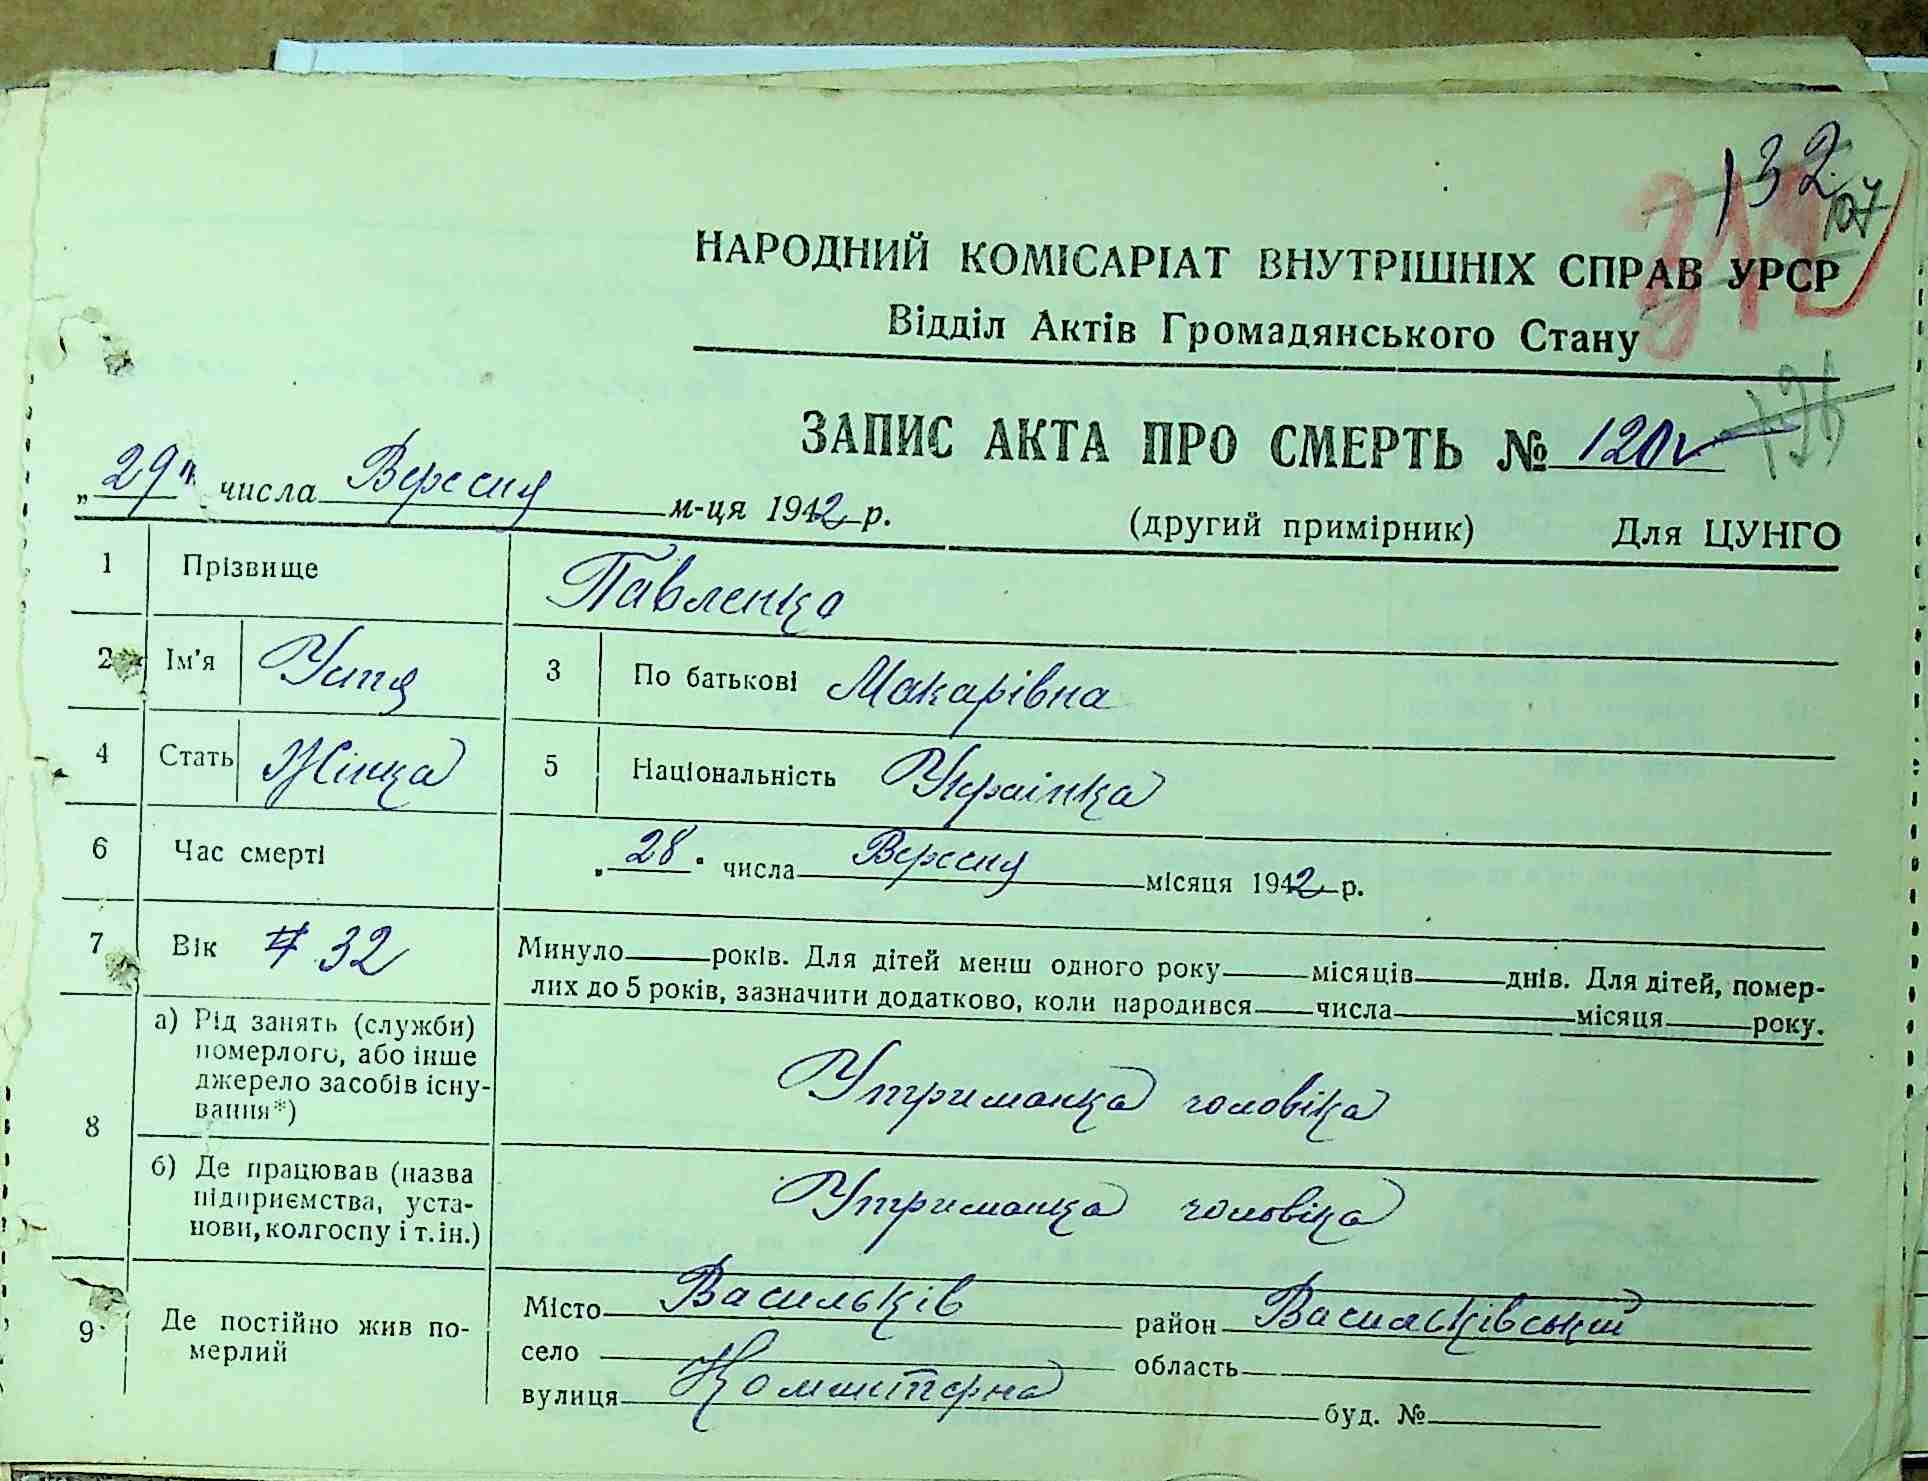 132
107
НАРОДНИЙ КОМІСАРІАТ ВНУТРІШНІХ СПРАВ УРСР
Відділ Актів Громадянського Стану
ЗАПИС АКТА ПРО СМЕРТЬ № 120
„29" числа Вересня м-ця 1942 р. (другий примірник) Для ЦУНГО
1 Прізвище Павленка
2 Ім'я Устя 3 По батькові Макарівна
4 Стать Жінка 5 Національність Українка
6 Час смерті „28" числа Вересня місяця 1942 р.
7 Вік 32 Минуло років. Для дітей менш одного року місяців днів. Для дітей, помер-
лих до 5 років, зазначити додатково, коли народився числа місяця року.
8 а) Рід занять (служби)
померлого, або інше
джерело засобів існу-
вання*) Утриманка чоловіка
б) Де працював (назва
підприємства, уста-
нови, колгоспу і т.ін.) Утриманка чоловіка
9 Де постійно жив по-
мерлий
Місто Васильків район Васильківський
село область
вулиця Комінтерна буд. №